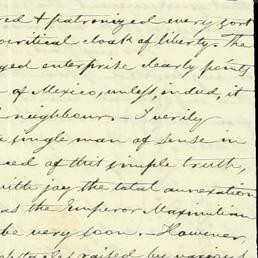 red & patronized every sort
ocritical cloak of liberty. The
yed enterprise clearly points
of Mexico, unless indeed, it
neighbour. - I verily
a single man of sense in
ced of this simple truth,
with joy the total annexation
as the Emperor Maximilian
be very soon. - However,
raised by various